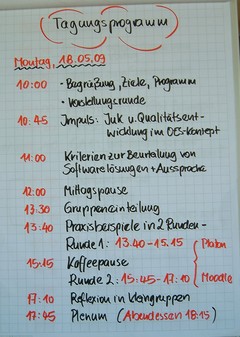 Tagungsprogramm
Montag, 18.05.09
10:00 - Begrüßung, Ziele, Programm
- Vorstellungsrunde
10:45 Impuls: JuK u. Qualitätsent-
wicklung im OES-Konzept
11:00 Kriterien zur Beurteilung von
Softwarelösungen + Aussprache
12:00 Mittagspause
13:30 Gruppeneinteilung
13:40 Praxisbeispiele in 2 Runden -
Runde 1: 13.40 - 15.15
Platon
15:15 Kaffeepause
Runde 2: 15:45 - 17:10
Moodle
17:10 Reflexion in Kleingruppen
17:45 Plenum (Abendessen 18:15)